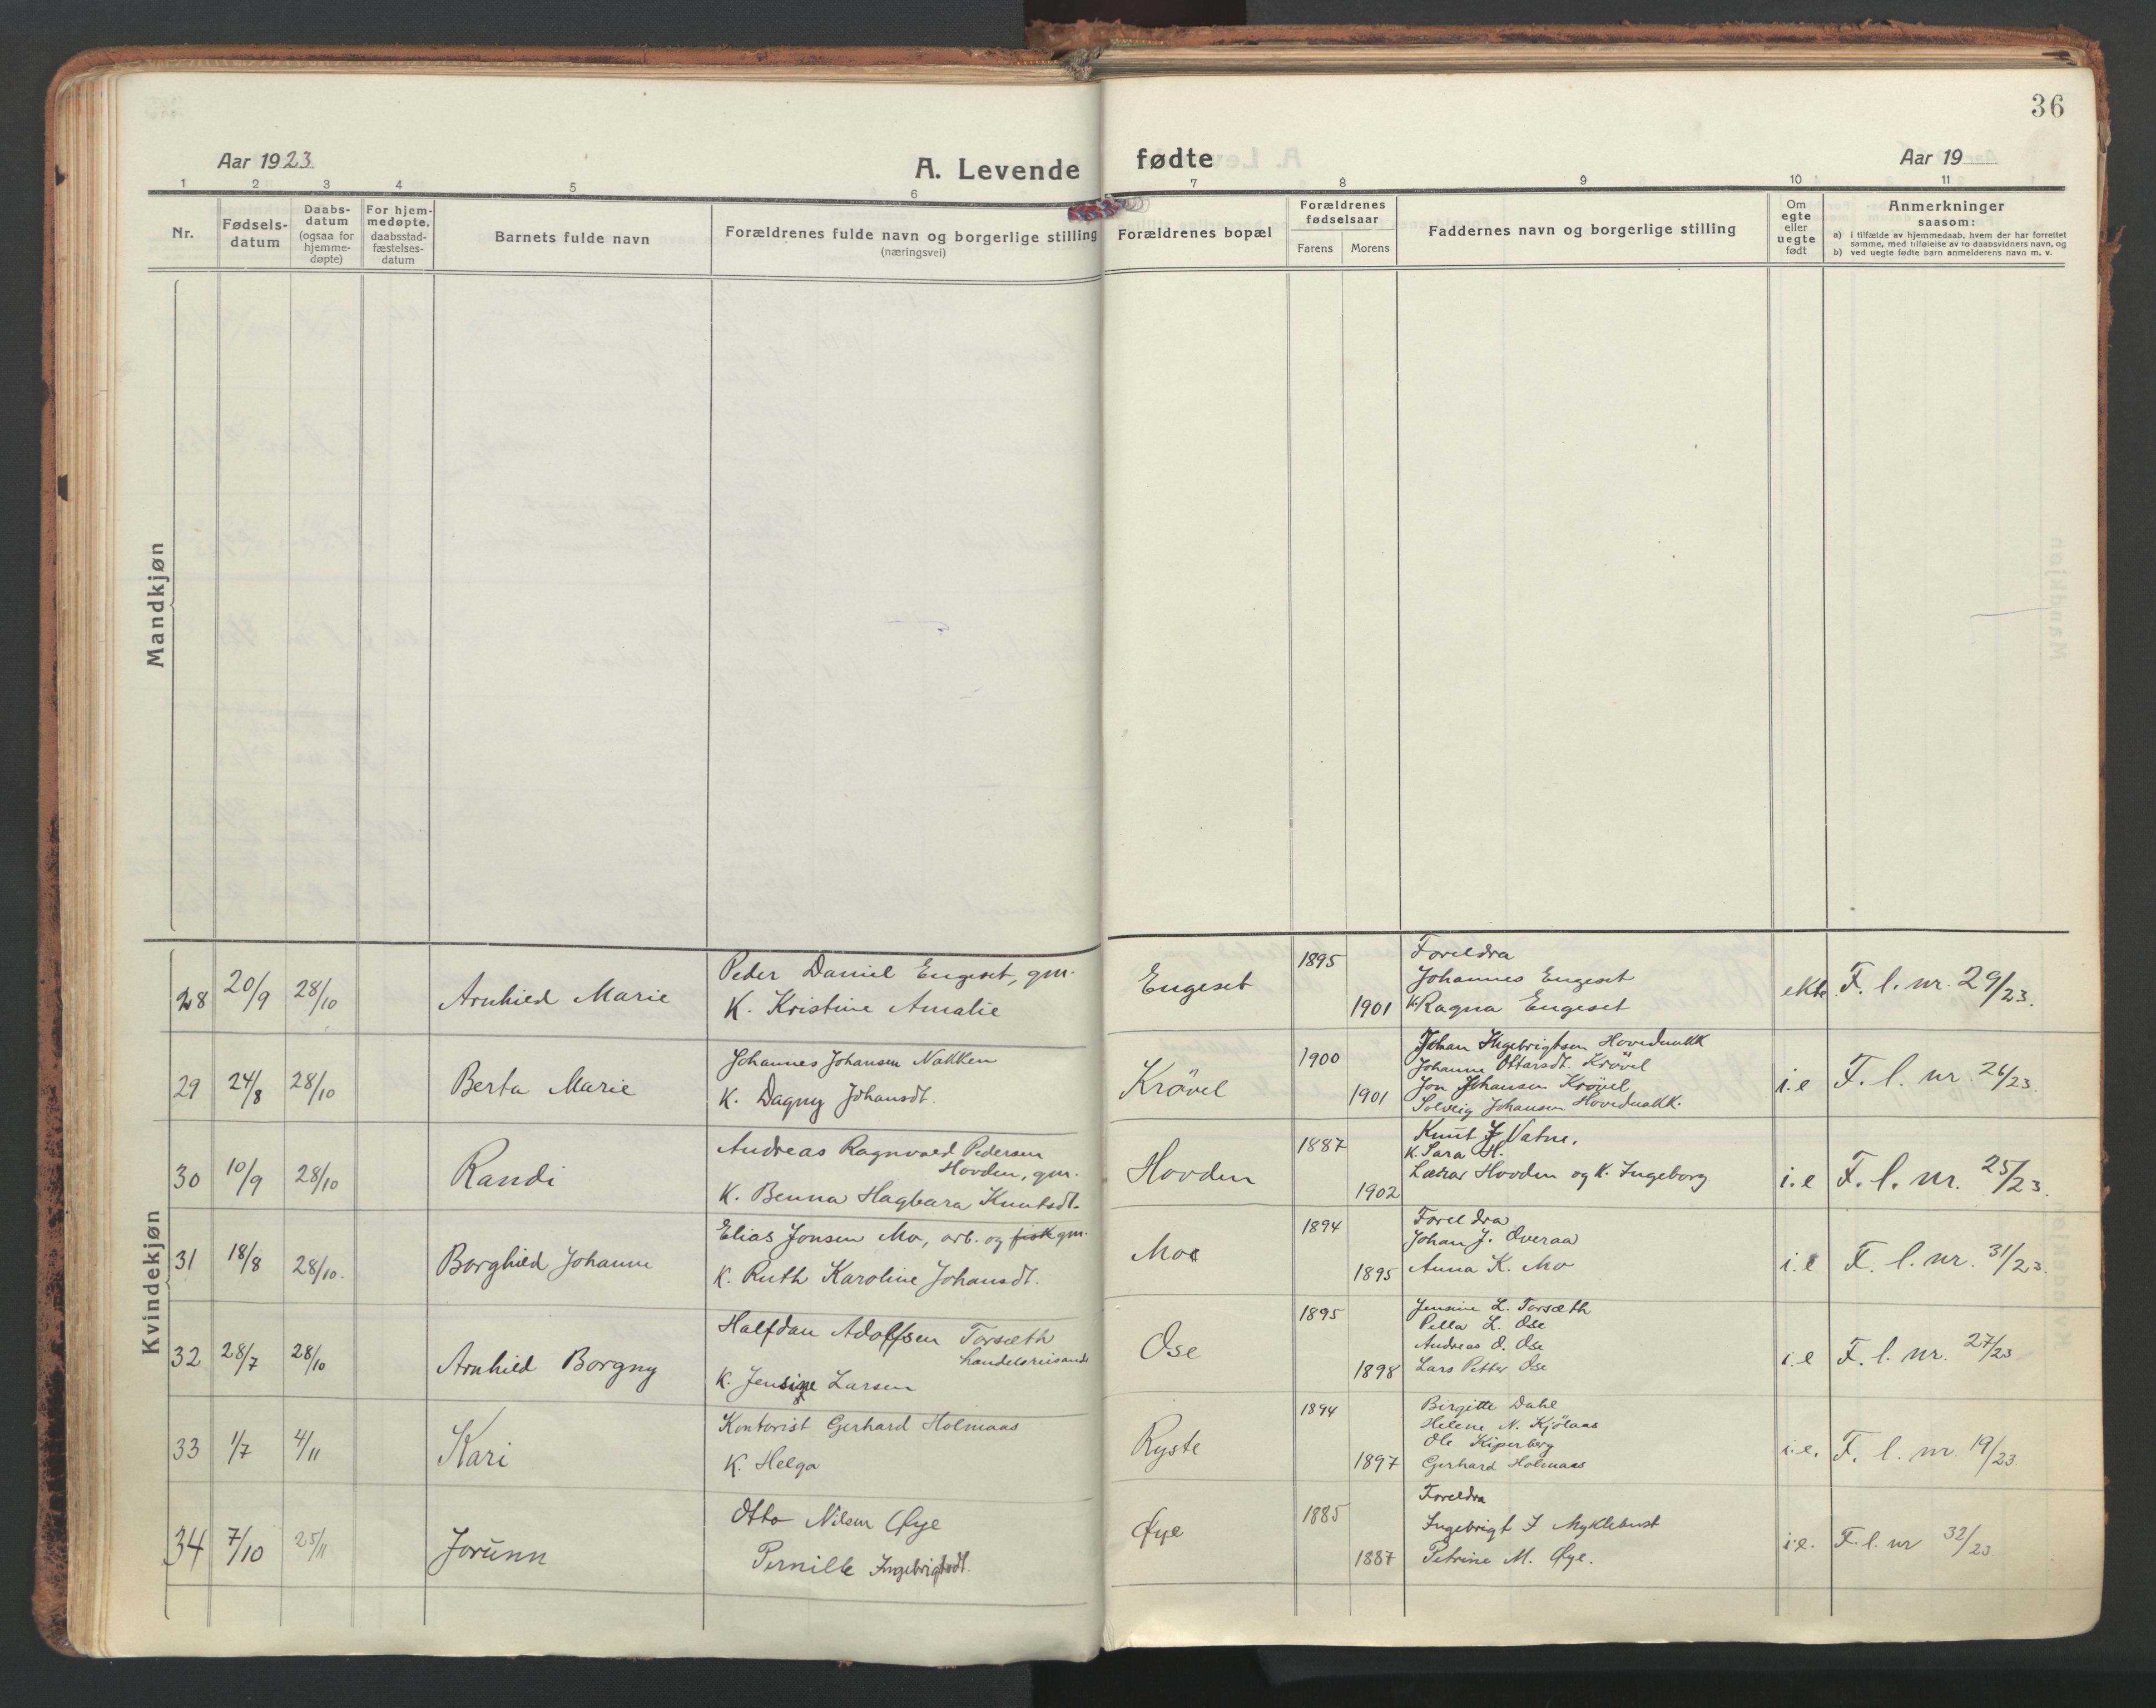 36
Aar 1923
A. Levende fødte
Aar 19
1 2 3 4 5 6 7 8 9 10 11
Nr.
Fødsels-
datum
Daabs-
datum
(ogsaa for
hjemme-
døpte)
For hjem-
medøpte,
daabsstad-
fæstelses-
datum
Barnets fulde navn
Forældrenes fulde navn og borgerlige stilling
(næringsvei)
Forældrenes bopæl
Forældrenes
fødselsaar
Farens Morens
Faddernes navn og borgerlige stilling
Om
egte
eller
uegte
født
Anmerkninger
saasom:
a) i tilfælde av hjemmedaab, hvem der har forrettet
samme, med tilføielse av to daabsvidners navn, og
b) ved uegte fødte barn anmelderens navn m. v.
Mandkjøn
Kvindekjøn
28 20/9 28/10 Arnhild Marie
Peder Daniel Engeset, gm.
K. Kristine Amalie
Engeset
1895
1901
Foreldra
Johannes Engeset
K. Ragna Engeset
ekte F. l. nr. 29/23.
29 24/8 28/10 Berta Marie
Johannes Johansen Nakken
K. Dagny Johansdt.
Krövel
1900
1901
Johan Ingebrigtsen Hovednakk
Johanne Ottarsdt. Krövel
Jon Johansen Krövel
Solveig Johansen Hovednakk.
i.e F. l. nr. 26/23.
30 10/9 28/10 Randi
Andreas Ragnvald Pedersen
Hovden, gm.
K. Benna Hagbara Knutsdt.
Hovden
1887
1902
Knut J Vatne.
K. Sara H.
Hovden og K. Ingeborg
i.e F. l. nr. 25/23.
31 18/8 28/10. Borghild Johanne
Elias Jonsen Mo, arb. og fisk gm.
K. Ruth Karoline Johansdt.
Mo
1894
1895
Foreldra
Johan J. Overaa
Anna K. Mo
i.e F. l. nr. 31/23.
32 28/7 28/10 Arnhild Borgny
Halfdan Adolfsen Torsæth
handelsreisande
K. Jensine Larsen
Ose
1895
1898
Jensine L. Torsæth
Pella L. Ose
Andreas O. Ose
Lars Petter Ose
i.e F. l. nr. 27/23
33 1/7 4/11 Kari
Kontorist Gerhard Holmaas
K. Helga
Ryste
1894
1897
Birgitte Dahl
Helene N. Kjölaas
Ole Kiperberg
Gerhard Holmaas
i.e. F. l. nr. 19/23.
34 7/10 25/11 Jorunn
Otto Nilsen Øye
Pernille Ingebrigtsdt.
Øye
1885
1887
Foreldra
Ingebrigt J Myklebust
Petrine M. Øye.
i.e. F. l. nr 32/23.